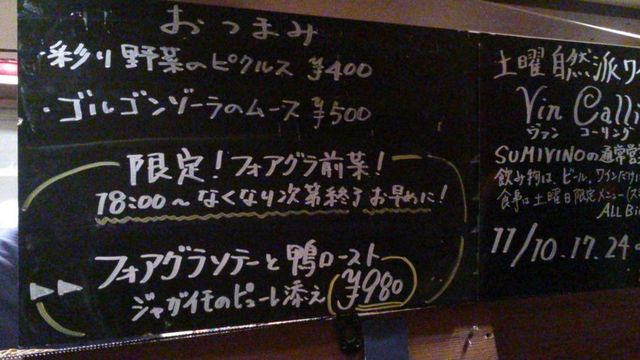 おつまみ
・彩り野菜のピクルス ¥400
・ゴルゴンゾーラのムース ¥500
限定!フォアグラ前菜!
18:00〜なくなり次第終了 お早めに!
フォアグラソテーと鴨ロースト
ジャガイモのピューレ添え ¥980
土曜自然派ワ
Vin Calli
ヴァン コーリング
SUMIVINOの通常営
飲み物は、ビール、ワインだけ
食事は土曜日限定メニュー
ALL B
11/10.17.24